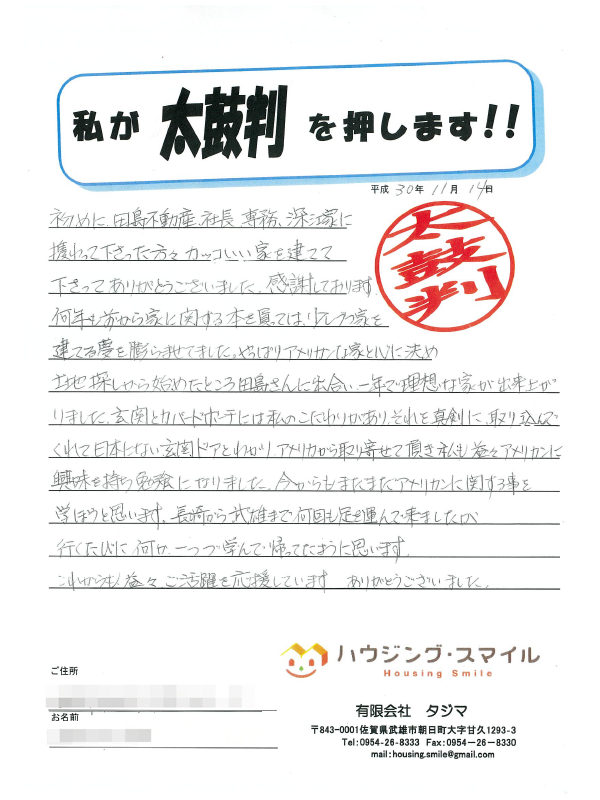 私が 太鼓判 を押します!!
平成 30年 11月 14日
太鼓判
初めに、田島不動産、社長、専務、深江家に
携わって下さった方々カッコいい家を建てて
下さってありがとうございました。感謝しております。
何年も前から家に関する本を買っては、少しづつ家を
建てる夢を膨らませてました。やっぱりアメリカンな家と心に決め
土地探しから始めたところ田島さんに出会い、一年で理想な家が出来上が
りました。玄関とカバードポーチには私のこだわりがあり、それを真剣に、取り込んで
くれて日本にない玄関ドアとわかり、アメリカから取り寄せて頂き私も益々アメリカンに
興味を持ち勉強になりました。今からもまだまだアメリカンに関する事を
学ぼうと思います。長崎から武雄まで何回も足を運んで来ましたが
行くたびに何か、一つづつ学んで帰ってたように思います。
これからも益々、ご活躍を応援しています ありがとうございました。
ハウジング・スマイル
Housing Smile
ご住所
お名前
有限会社 タジマ
〒843-0001佐賀県武雄市朝日町大字甘久1293-3
Tel:0954-26-8333 Fax:0954-26-8330
mail:housing.smile@gmail.com